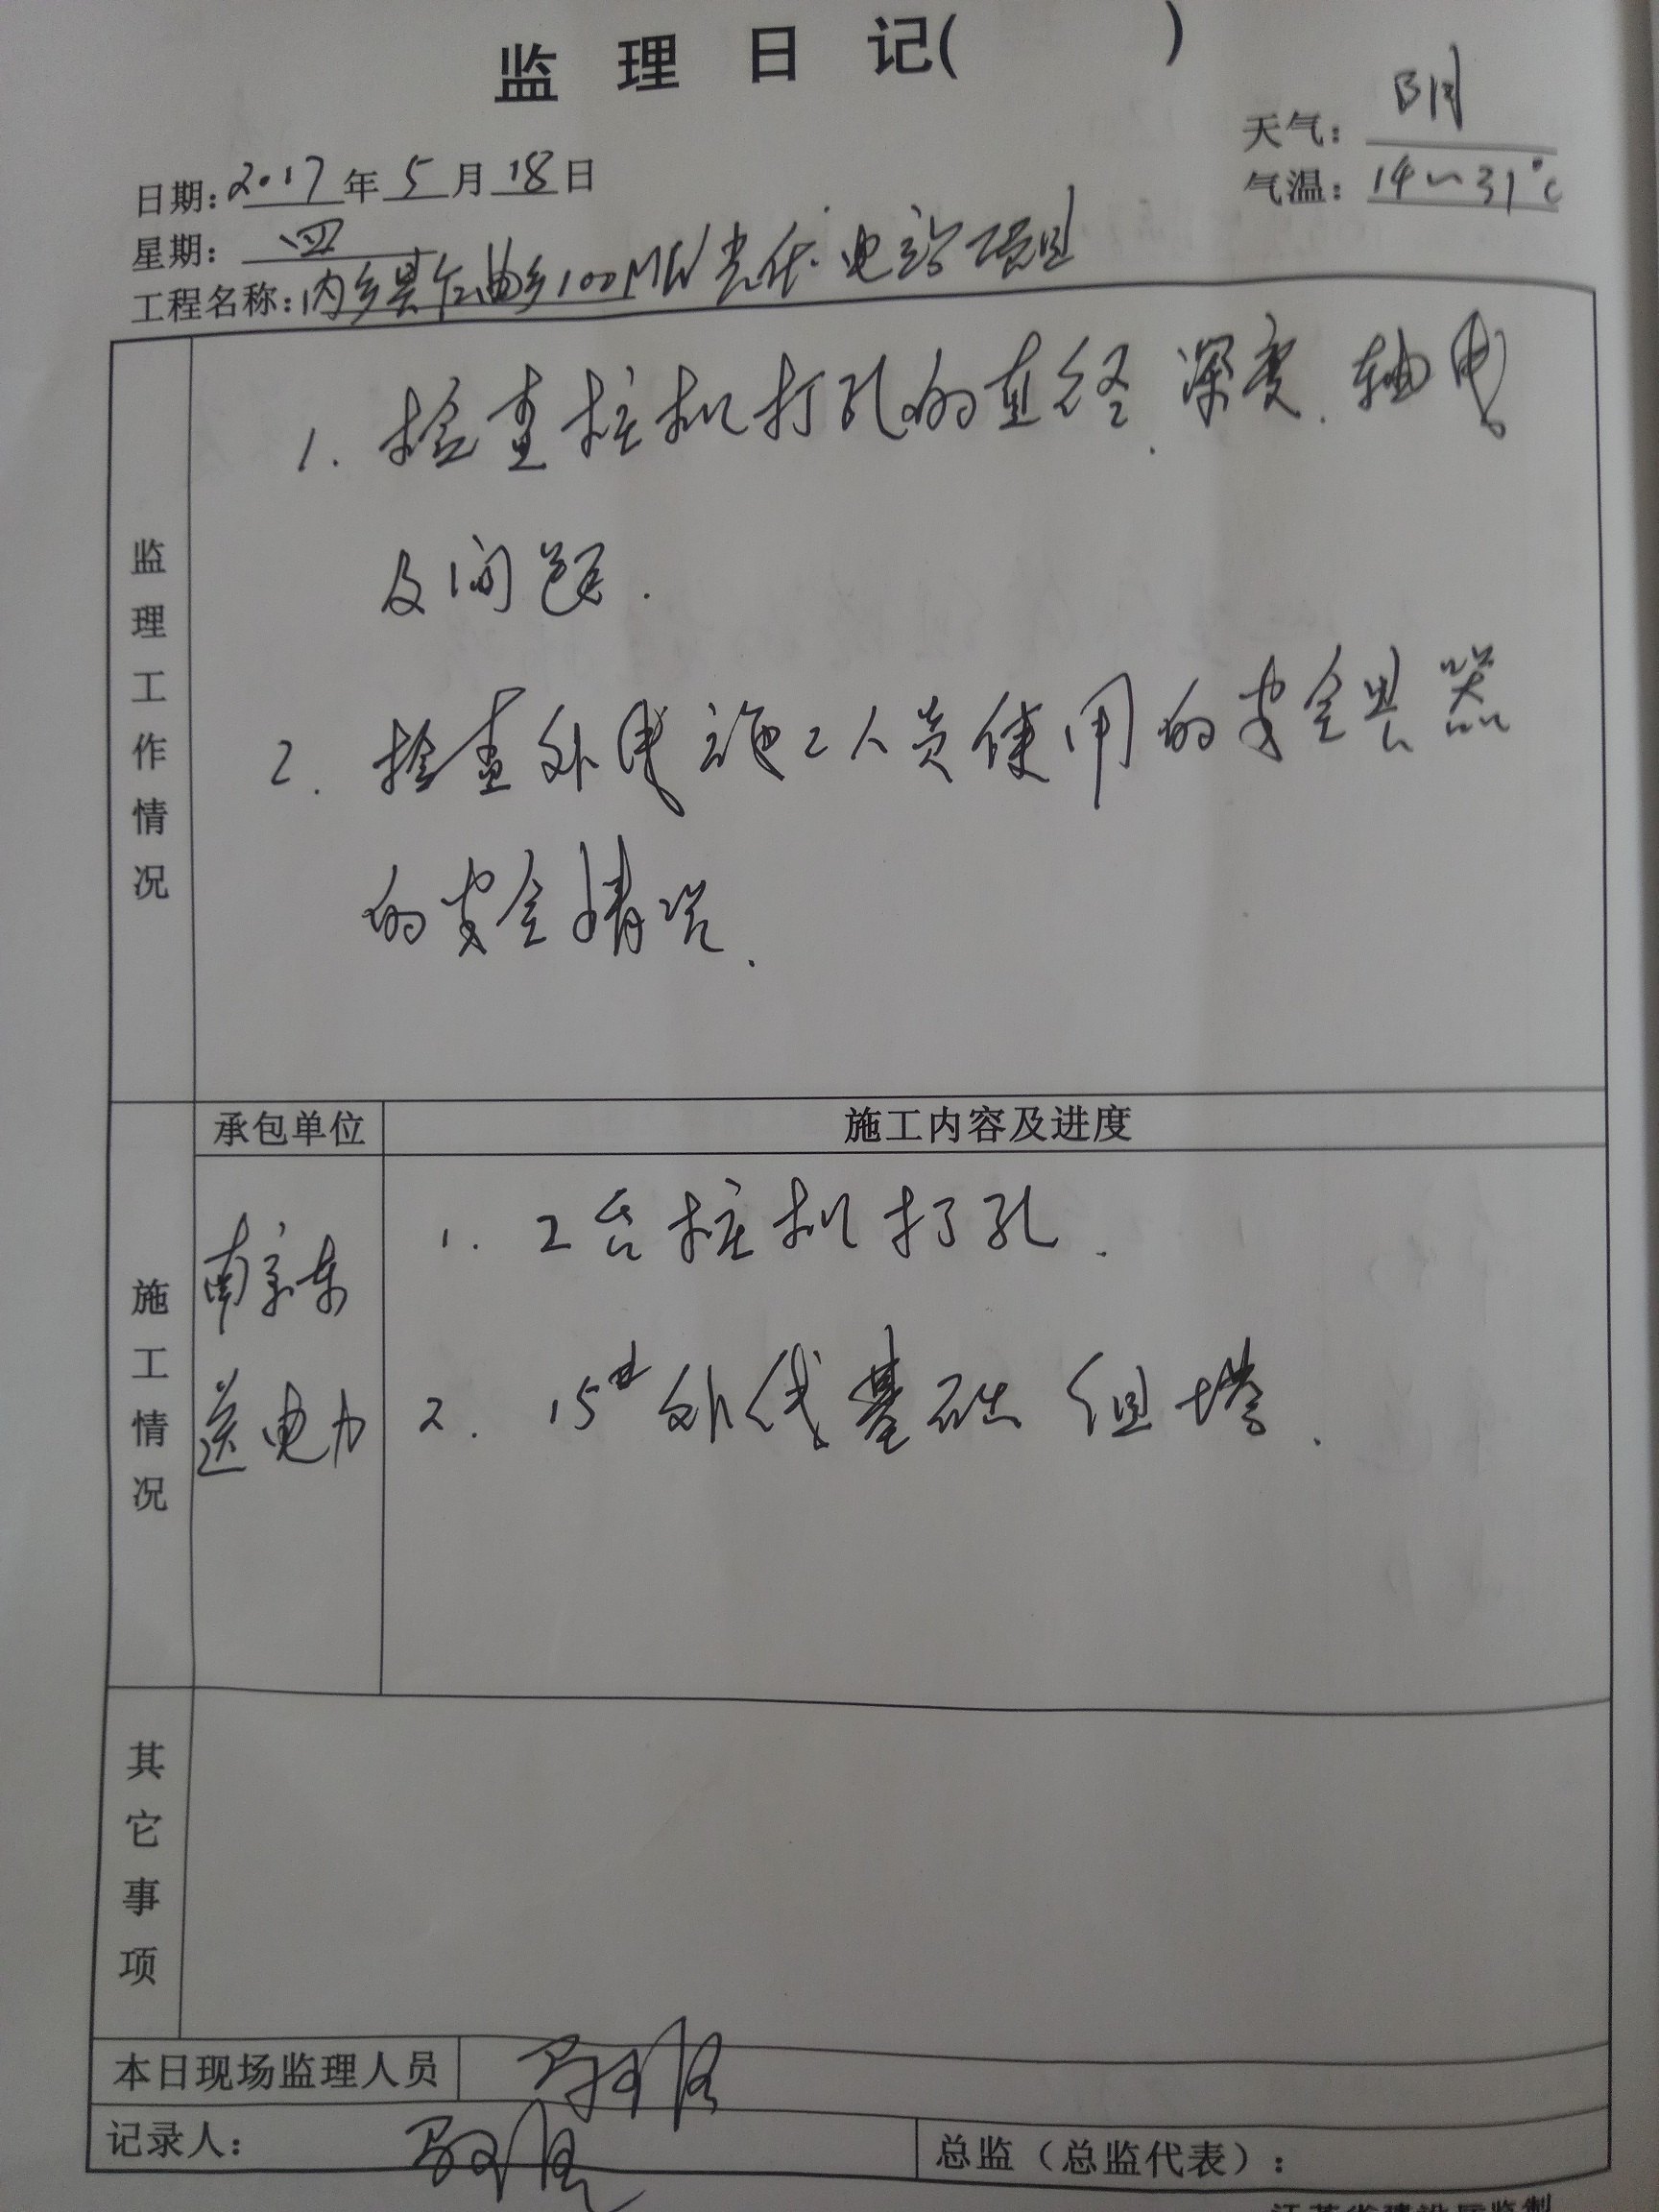 监理日记( )
天气：阴
日期：2017年5月18日
气温：14～31℃
星期：四
工程名称：内乡县乍曲乡100MW光伏电站项目
监理工作情况
1. 检查桩机打孔的直径.深度.轴线
及间距.
2. 检查外线施工人员使用的安全器
的安全情况.
承包单位 施工内容及进度
施工情况
南京东
送电力
1. 2台桩机打孔.
2. 15#外线基础组塔.
其它事项
本日现场监理人员
记录人：
总监（总监代表）：